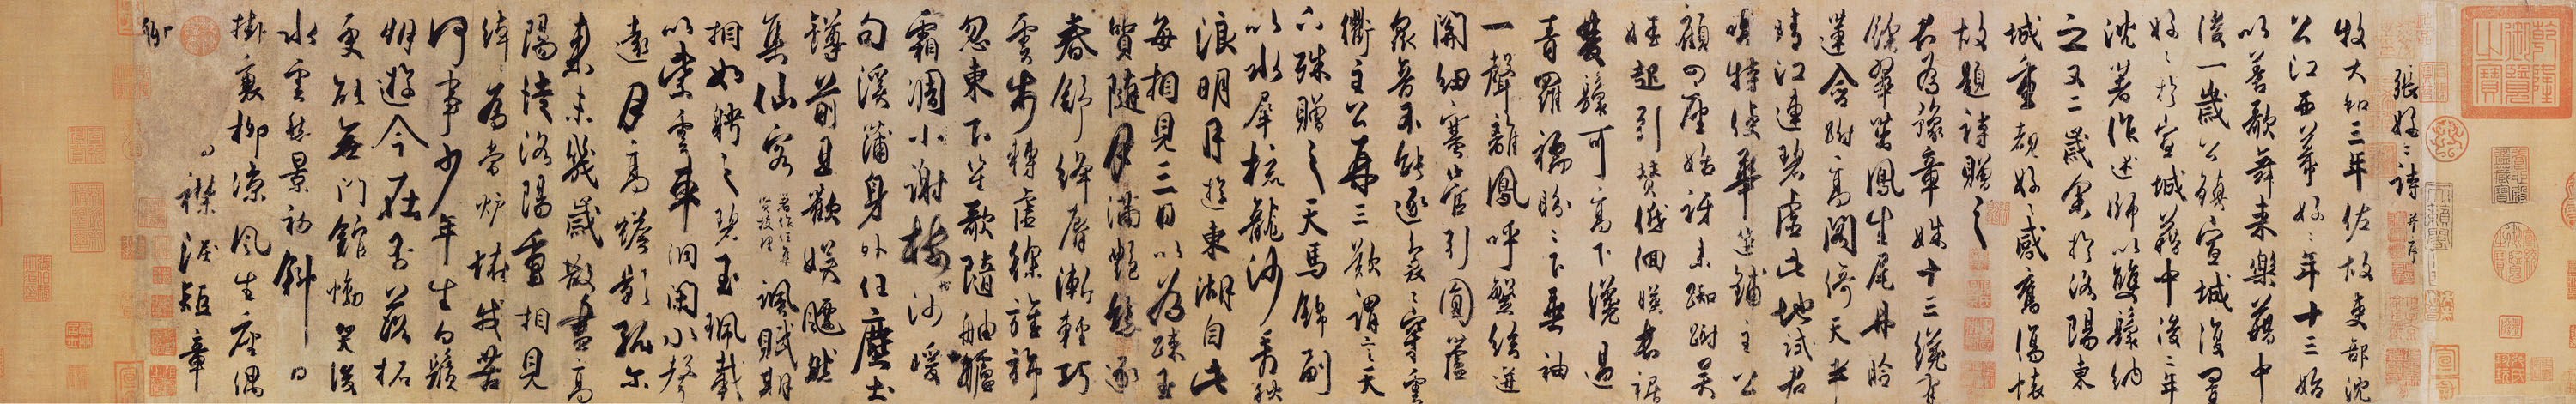 乾隆御覽之寶
張好好詩 并序
牧大和三年佐故吏部沈
公江西幕好好年十三始
以善歌舞来樂籍中
後一歲公鎮宣城復置
好好於宣城籍中後二年
沈著作述師以雙鬟納
之又二歲余於洛陽東
城重覩好好感舊傷懷
故題詩贈之
君為豫章姝十三纔有
餘翠茁鳳生尾丹臉
蓮含跗高閣倚天半
晴江連碧虛此地試君
唱特使華筵鋪主公
顧四座始訝来踟躕吳
娃起引贊低佪暎長裾
雙鬟可高下纔過
青羅襦盼盼下垂袖
一聲離鳳呼繁絃迸
關紐塞管引圓蘆
衆音不能逐裊裊穿雲
衢主公再三歎謂言天
下殊贈之天馬錦副
以水犀梳龍沙看秋
浪明月遊東湖自此
每相見三日以為疎玉
質隨月滿豔態逐
春舒絳脣漸輕巧
雲步轉虛徐旌旆
忽東下笙歌隨舳艫
霜凋小謝樓沙暖
句溪蒲身外任塵土
罇前且歡娛飄然
集仙客 著作任集賢校理 諷賦期
相如聘之碧玉珮載
以紫雲車洞閉水聲
遠月高蟾影孤尔
来未幾歲散盡高
陽徒洛陽重相見
綽綽為當壚怪我苦
何事少年生白鬚
朋遊今在否落拓
更能無門館慟哭後
水雲愁景初斜日
掛衰柳涼風生座隅
襟淚短章
聊